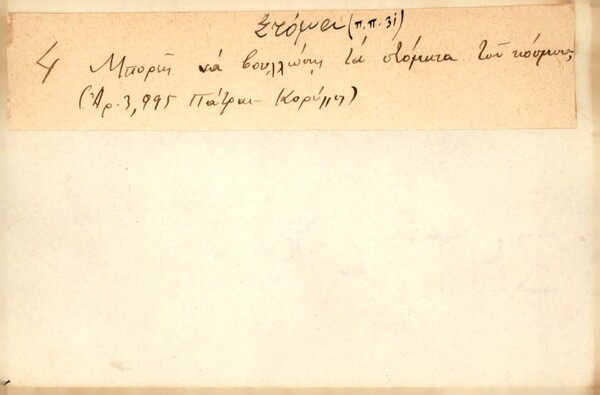 Στόμα (π.π. 31)
4 Μπορεῖς νά βουλλώσῃς τά στόματα τοῦ κόσμου;
(Ἀρ. 3,995 Πάτραι - Κορύλλη)